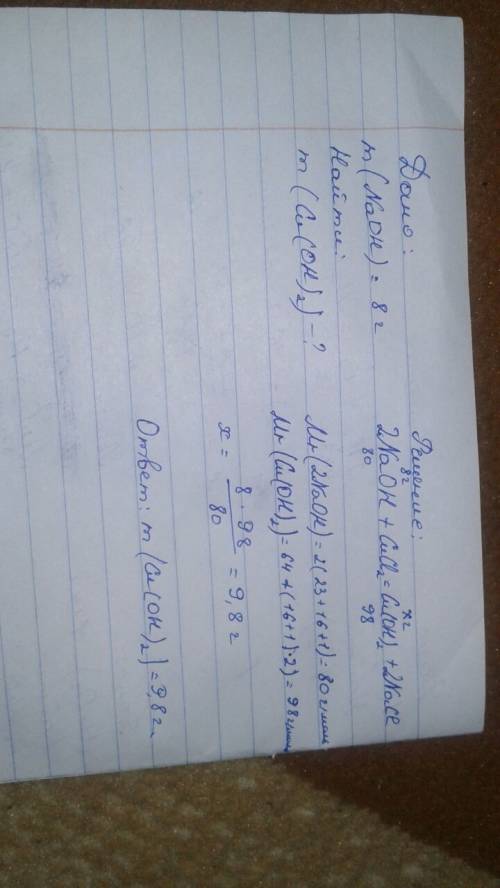 Дано:
m(NaOH) = 8г
Найти:
m(Cu(OH)₂) - ?
Решение:
8г хг
2NaOH + CuCl₂ = Cu(OH)₂ + 2NaCl
80 98
Mr(2NaOH) = 2(23+16+1) = 80г/моль
Mr(Cu(OH)₂) = 64+(16+1)·2) = 98г/моль
x = 8·98 / 80 = 9,8г
Ответ: m(Cu(OH)₂) = 9,8г.